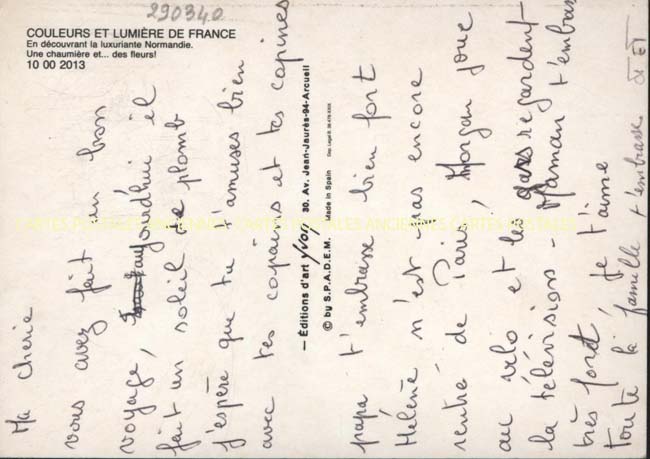 290340
COULEURS ET LUMIÈRE DE FRANCE
En découvrant la luxuriante Normandie.
Une chaumière et... des fleurs!
10 00 2013
Ma chérie
vous avez fait un bon
voyage, aujourd'hui il
fait un soleil de plomb
j'espère que tu t'amuses bien
avec tes copains et tes copines
— Éditions d'art YVON, 80, Av. Jean-Jaurès-94-Arcueil
© by S.P.A.D.E.M. Made in Spain
papa t'embrasse bien fort
Hélène n'est pas encore
rentré de Paris, Morgan joue
au vélo et les gars regardent
la télévision - Maman t'embrasse
très fort, je t'aime
toute la famille t'embrasse
CARTES POSTALES ANCIENNES CARTES POSTALES ANCIENNES CARTES POSTALES